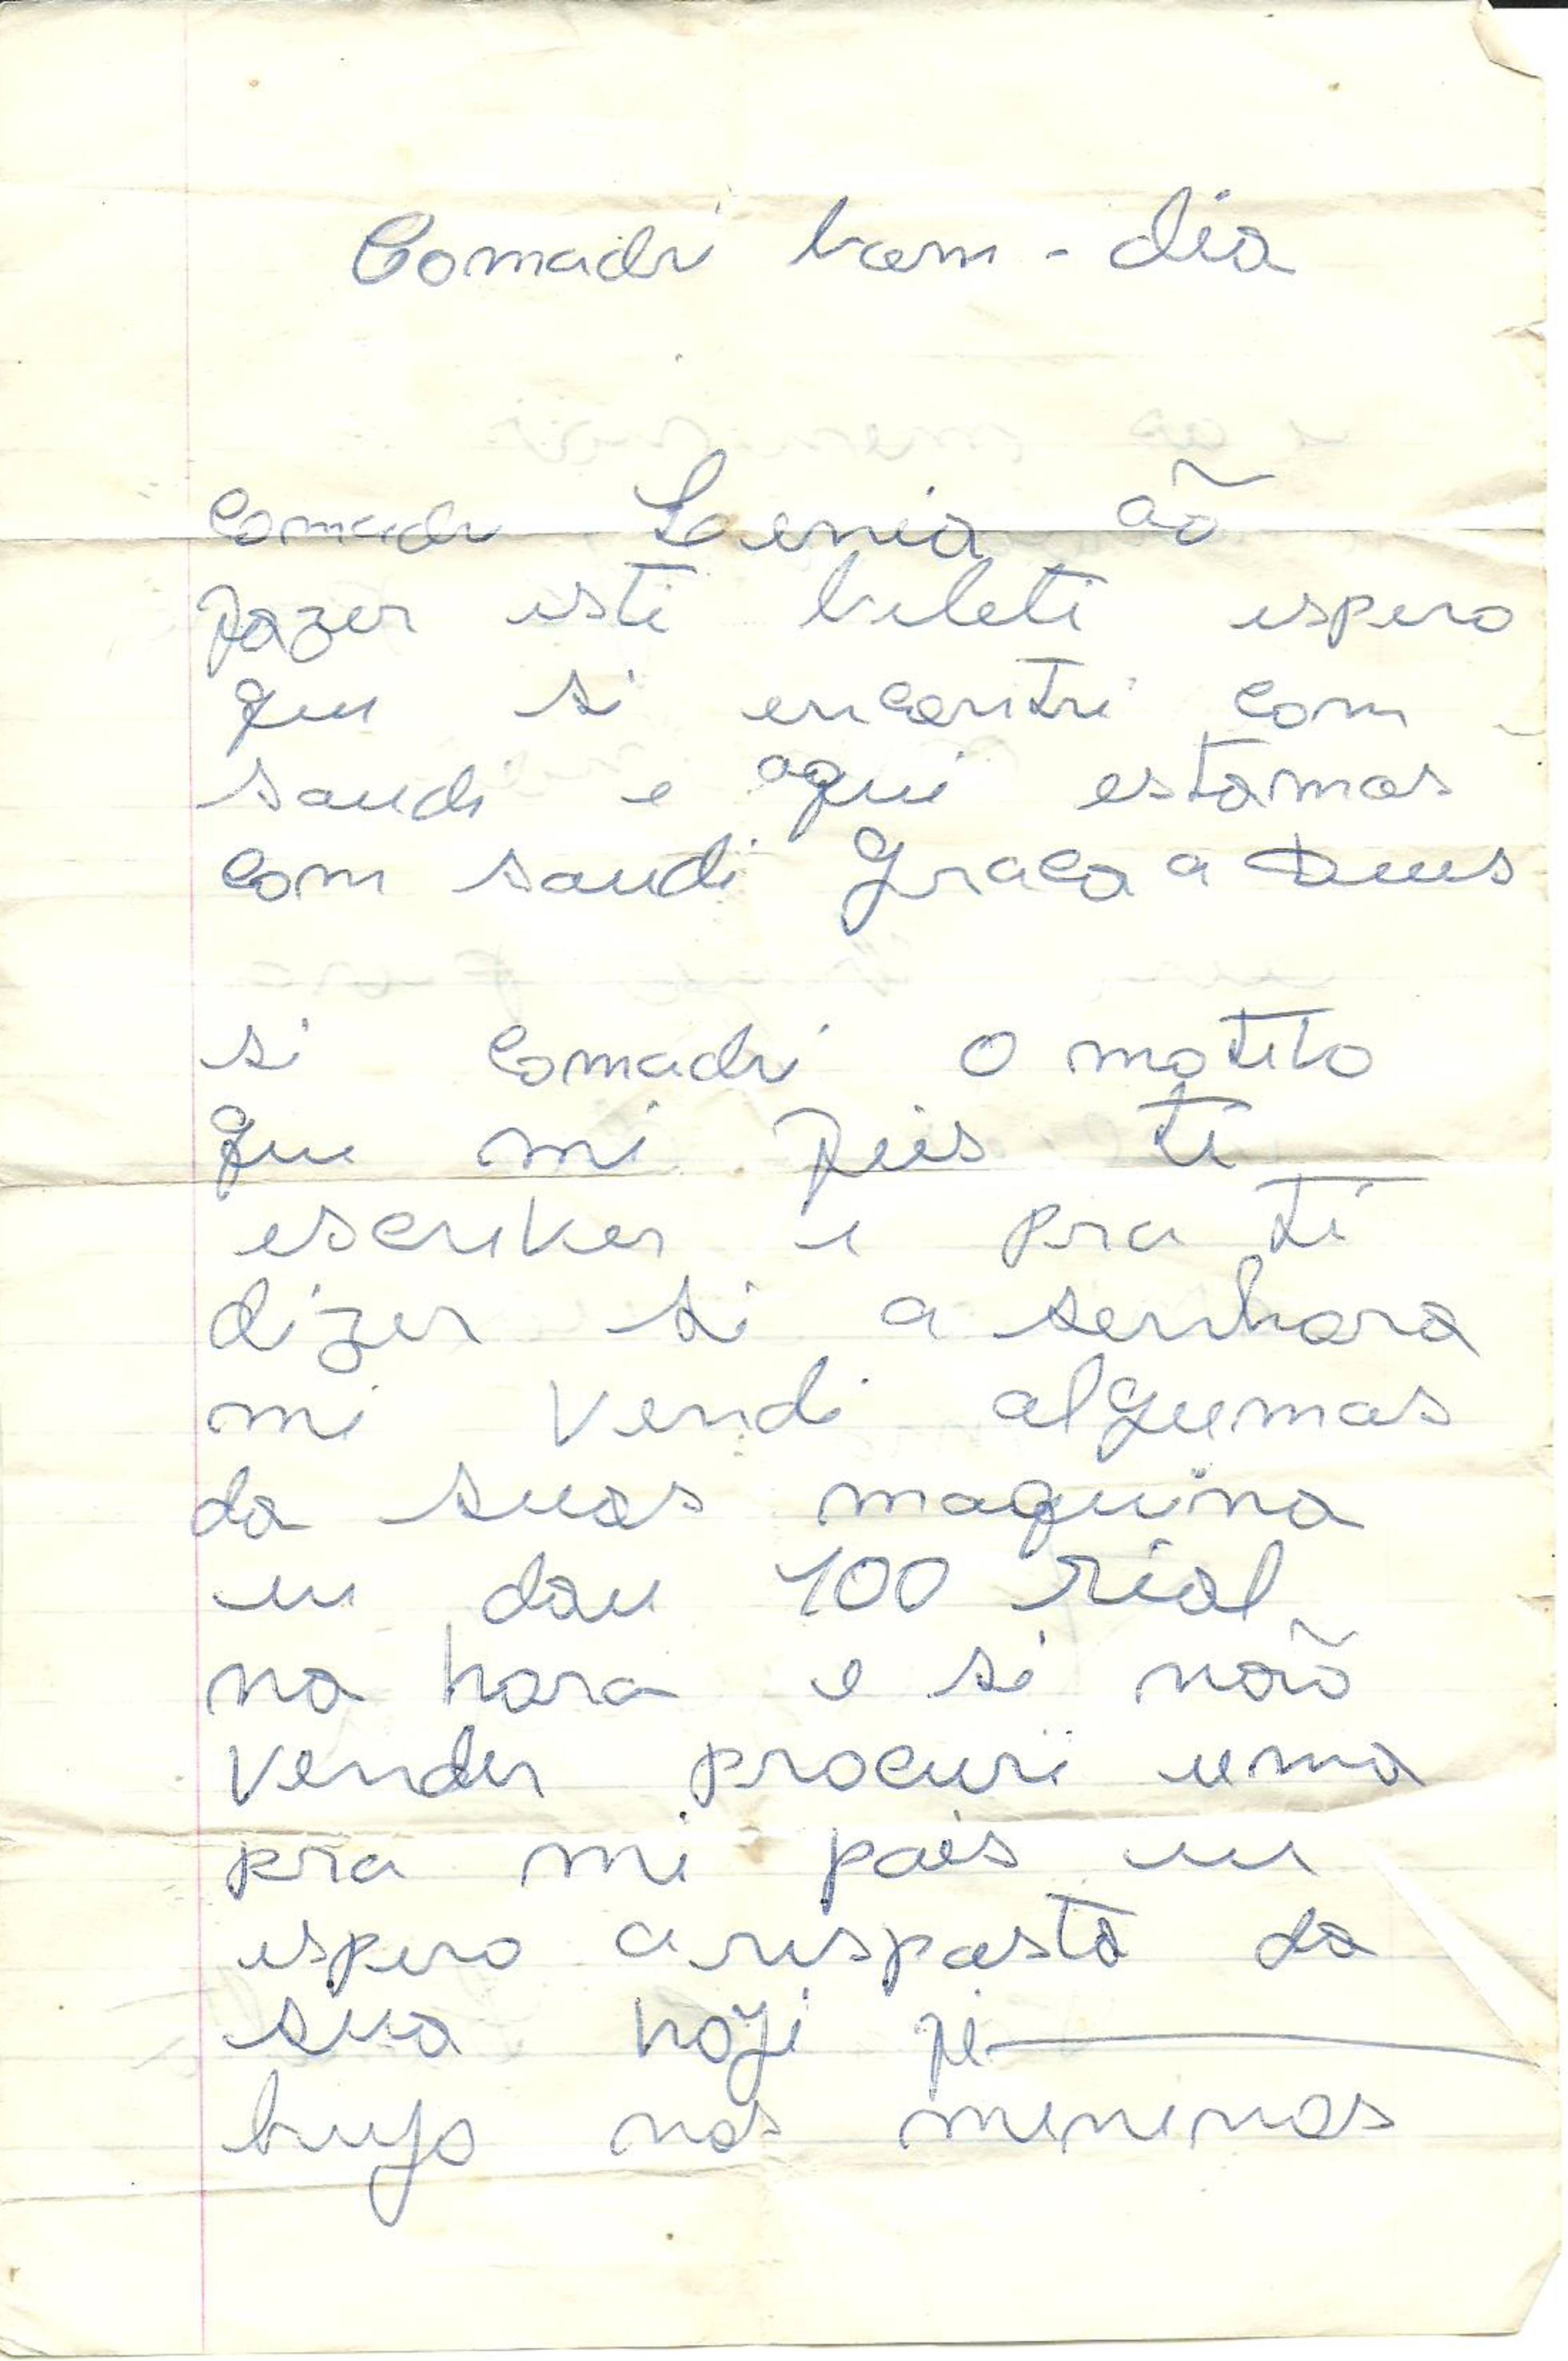 Comadri bom-dia
comadr Lenia aõ
fazer isti bileti espero
que si encontri com
saudi e aqui estamos
com saudi graca a Deus
si comadri o motito
que mi feis ti
escriver e pra ti
dizer si a senhora
mi vendi algumas
da suas maquina
eu dou 100 rial
na hora e si não
vender procuri uma
pra mi pois eu
espero a risposta da
sua hoji
bujo nos meninos